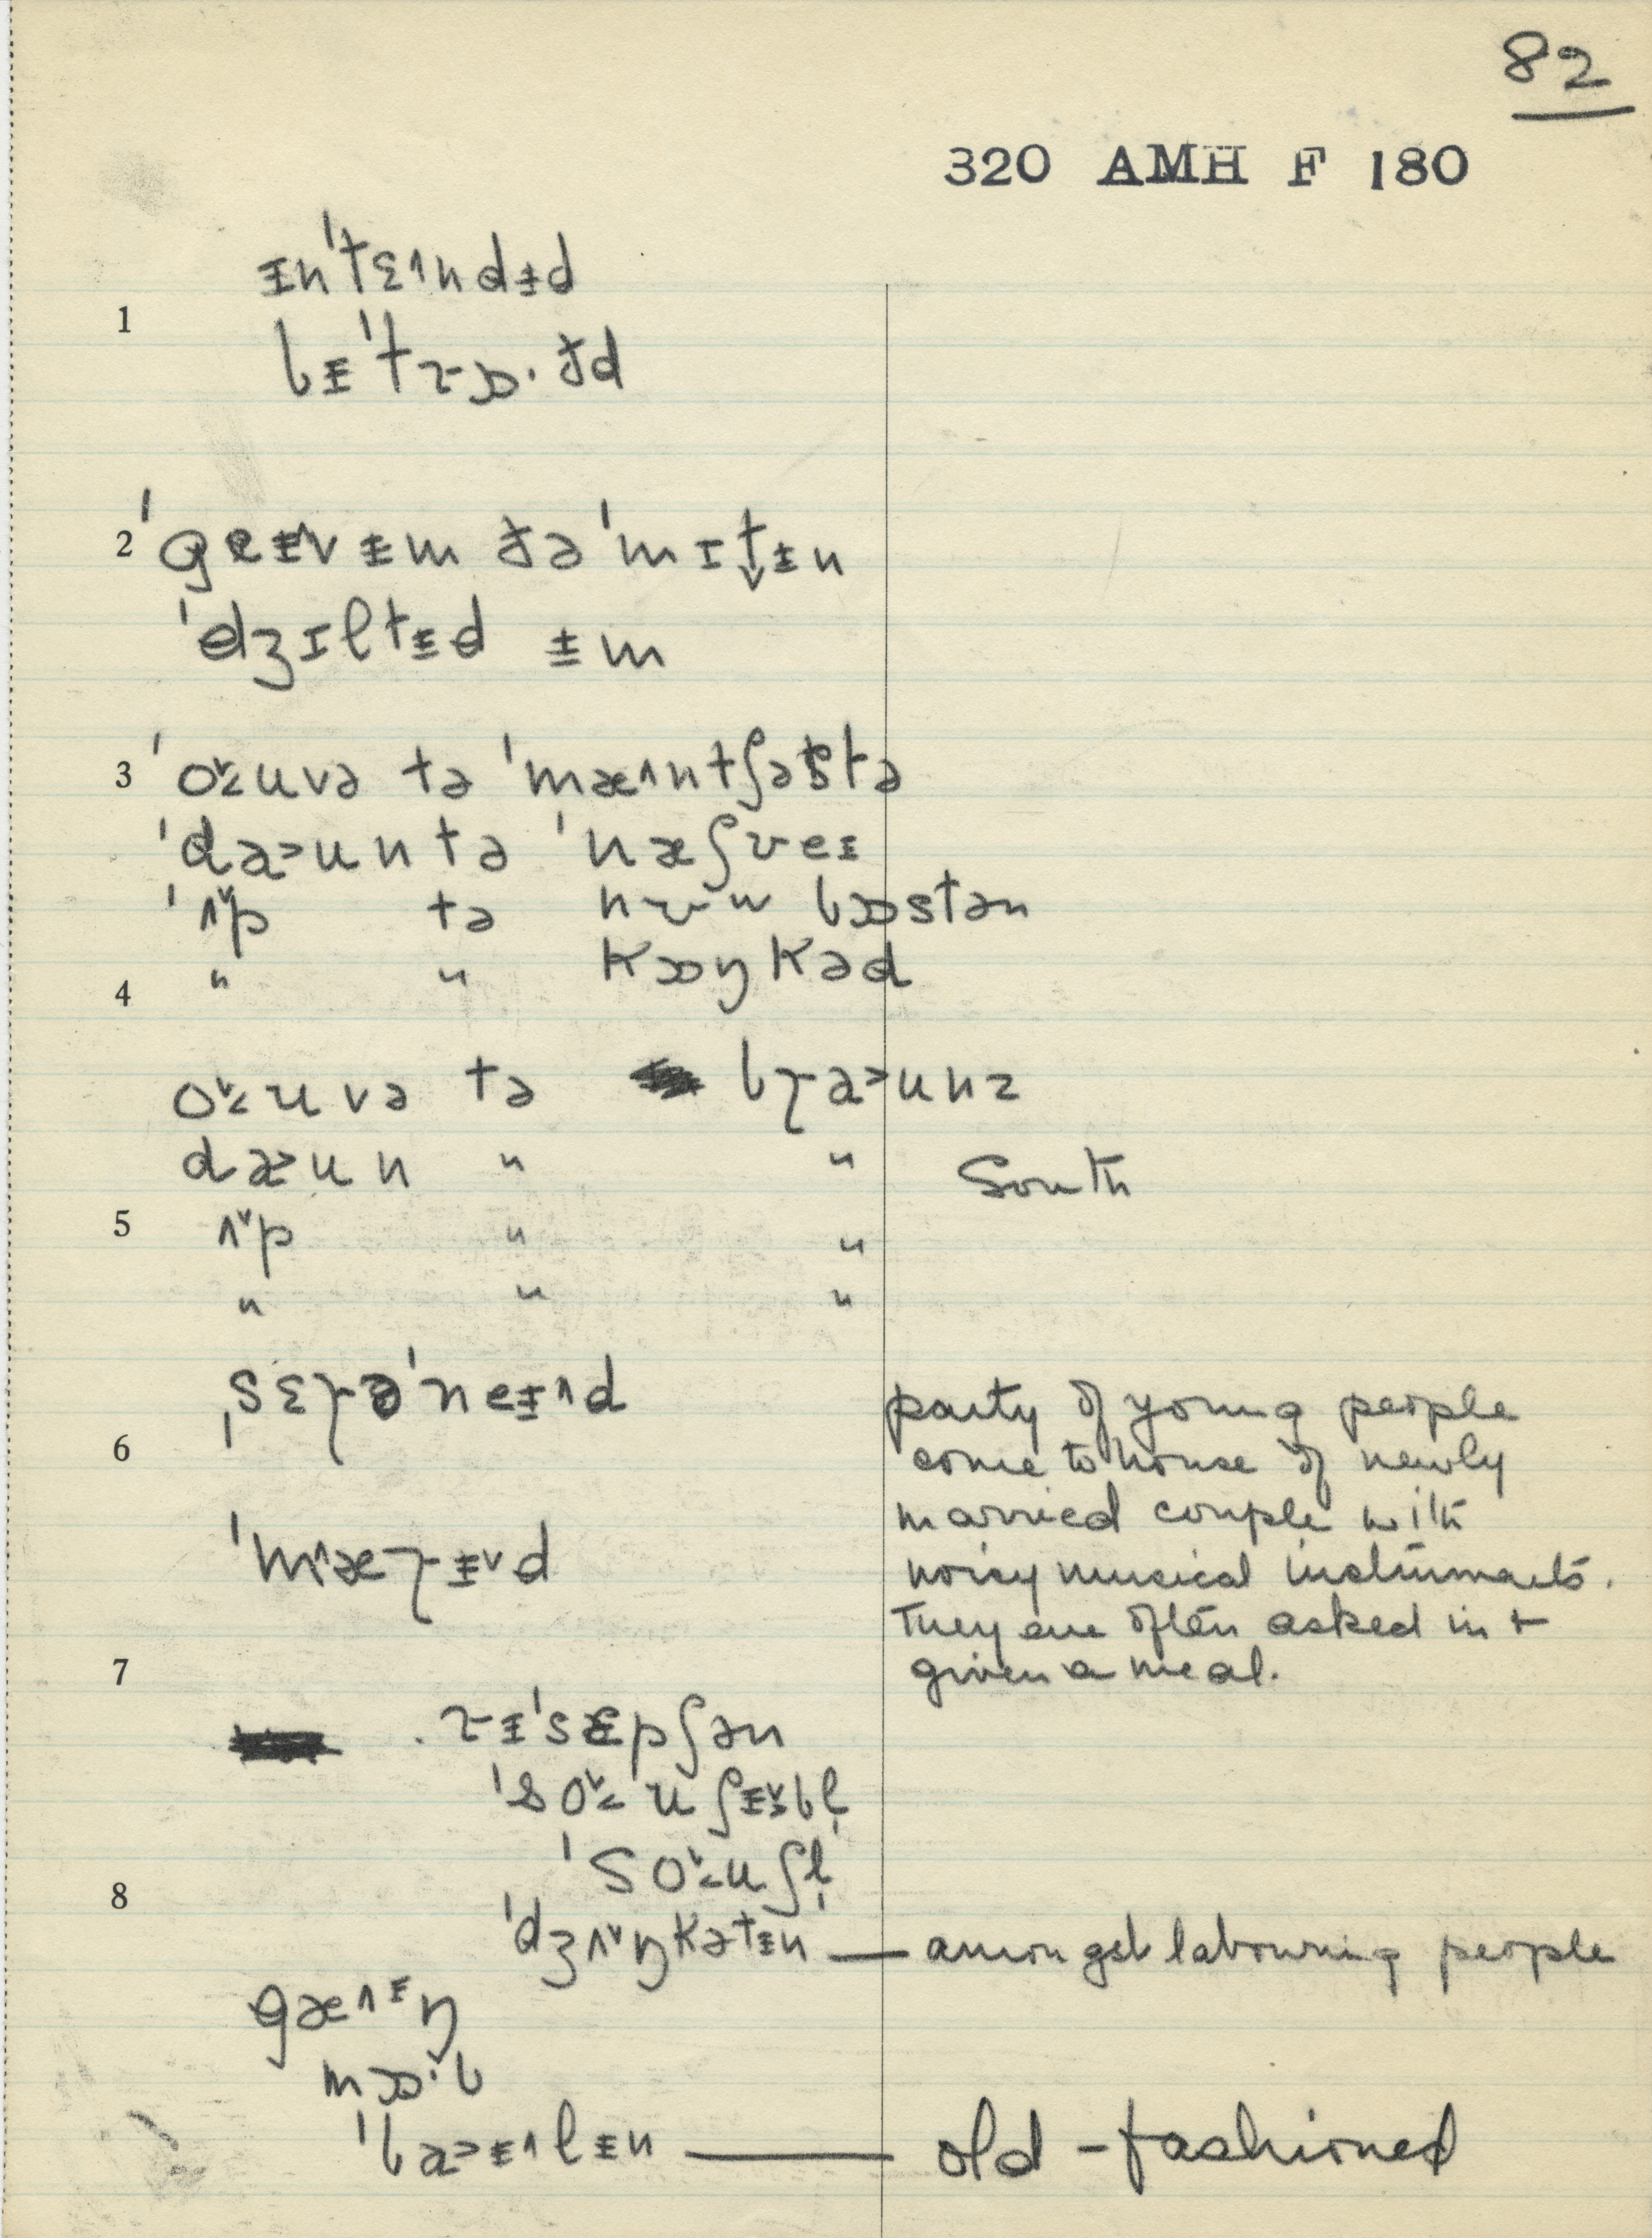 82
320 AMH F 180
ɪn'tɛ˄ndɨd
1
bɪ'trɒ·ɟd
2 'geɨvɨm ɟə'mɪtɨn
'dʒɪltɨd ɨm
3 'o˅˂uvə tə 'mæ˄ntʃəstə
'da˃un tə 'næʃveɪ
'ʌ˅p tə nʊw bɒstən
" " kɒŋkəd
4
o˅˂uvə tə bɼa˃unz
dæ˃un " " South
5 ʌ˅p " "
" " "
ˌsɛɼə'neɨ˄d party of young people
6 come to house of newly
married couple with
'm˄æɼɨ˅d noisy musical instruments.
They are often asked in +
7 given a meal.
rɨ'sɛpʃən
'so˅˂uʃɨ˅bl̩
'so˅˂uʃl̩
8
'dʒʌ˅ŋkətɨn — amongst labouring people
gæ˄ɨŋ
mɒ·b
'ba˃ɨ˄lɨn — old-fashioned